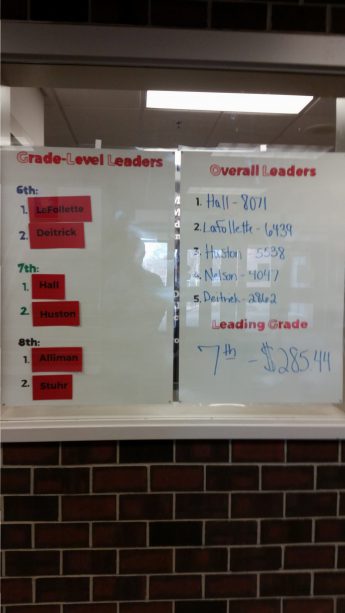 Grade-Level Leaders
6th:
1. LaFollette
2. Deitrick
7th:
1. Hall
2. Huston
8th:
1. Alliman
2. Stuhr
Overall Leaders
1. Hall - 8071
2. LaFollette - 6439
3. Huston - 5538
4. Nelson - 4047
5. Deitrick - 2862
Leading Grade
7th - $285.44